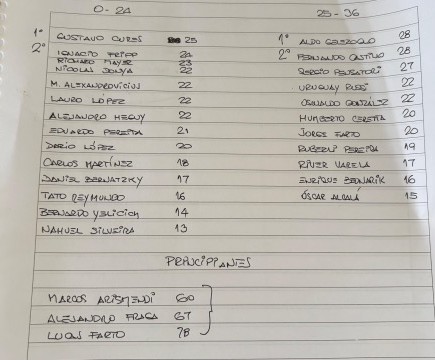 0-24
1° GUSTAVO CURES 25
2° IGNACIO 24
RICHARD MAYER 23
NICOLAS 22
M. ALEXANDROVICIUS 22
LAURO LÓPEZ 22
ALEJANDRO HEGUY 22
EDUARDO PEREIRA 21
DARÍO LÓPEZ 20
CARLOS MARTÍNEZ 18
DANIEL BERNATZKY 17
TATO REYMUNDO 16
BERNARDO YELICICH 14
NAHUEL SILVEIRA 13
25-36
1° ALDO 28
2° FERNANDO CASTILLO 28
SERGIO 27
URUGUAY 22
OSVALDO GONZÁLEZ 22
HUMBERTO CERETTA 20
JORGE FARTO 20
RUBERLI PEREIRA 19
RIVER VARELA 17
ENRIQUE BEDNARIK 16
ÓSCAR ALCALÁ 15
PRINCIPIANTES
MARCOS ARISMENDI 60
ALEJANDRO FRAGA 67
LUCAS FARTO 78